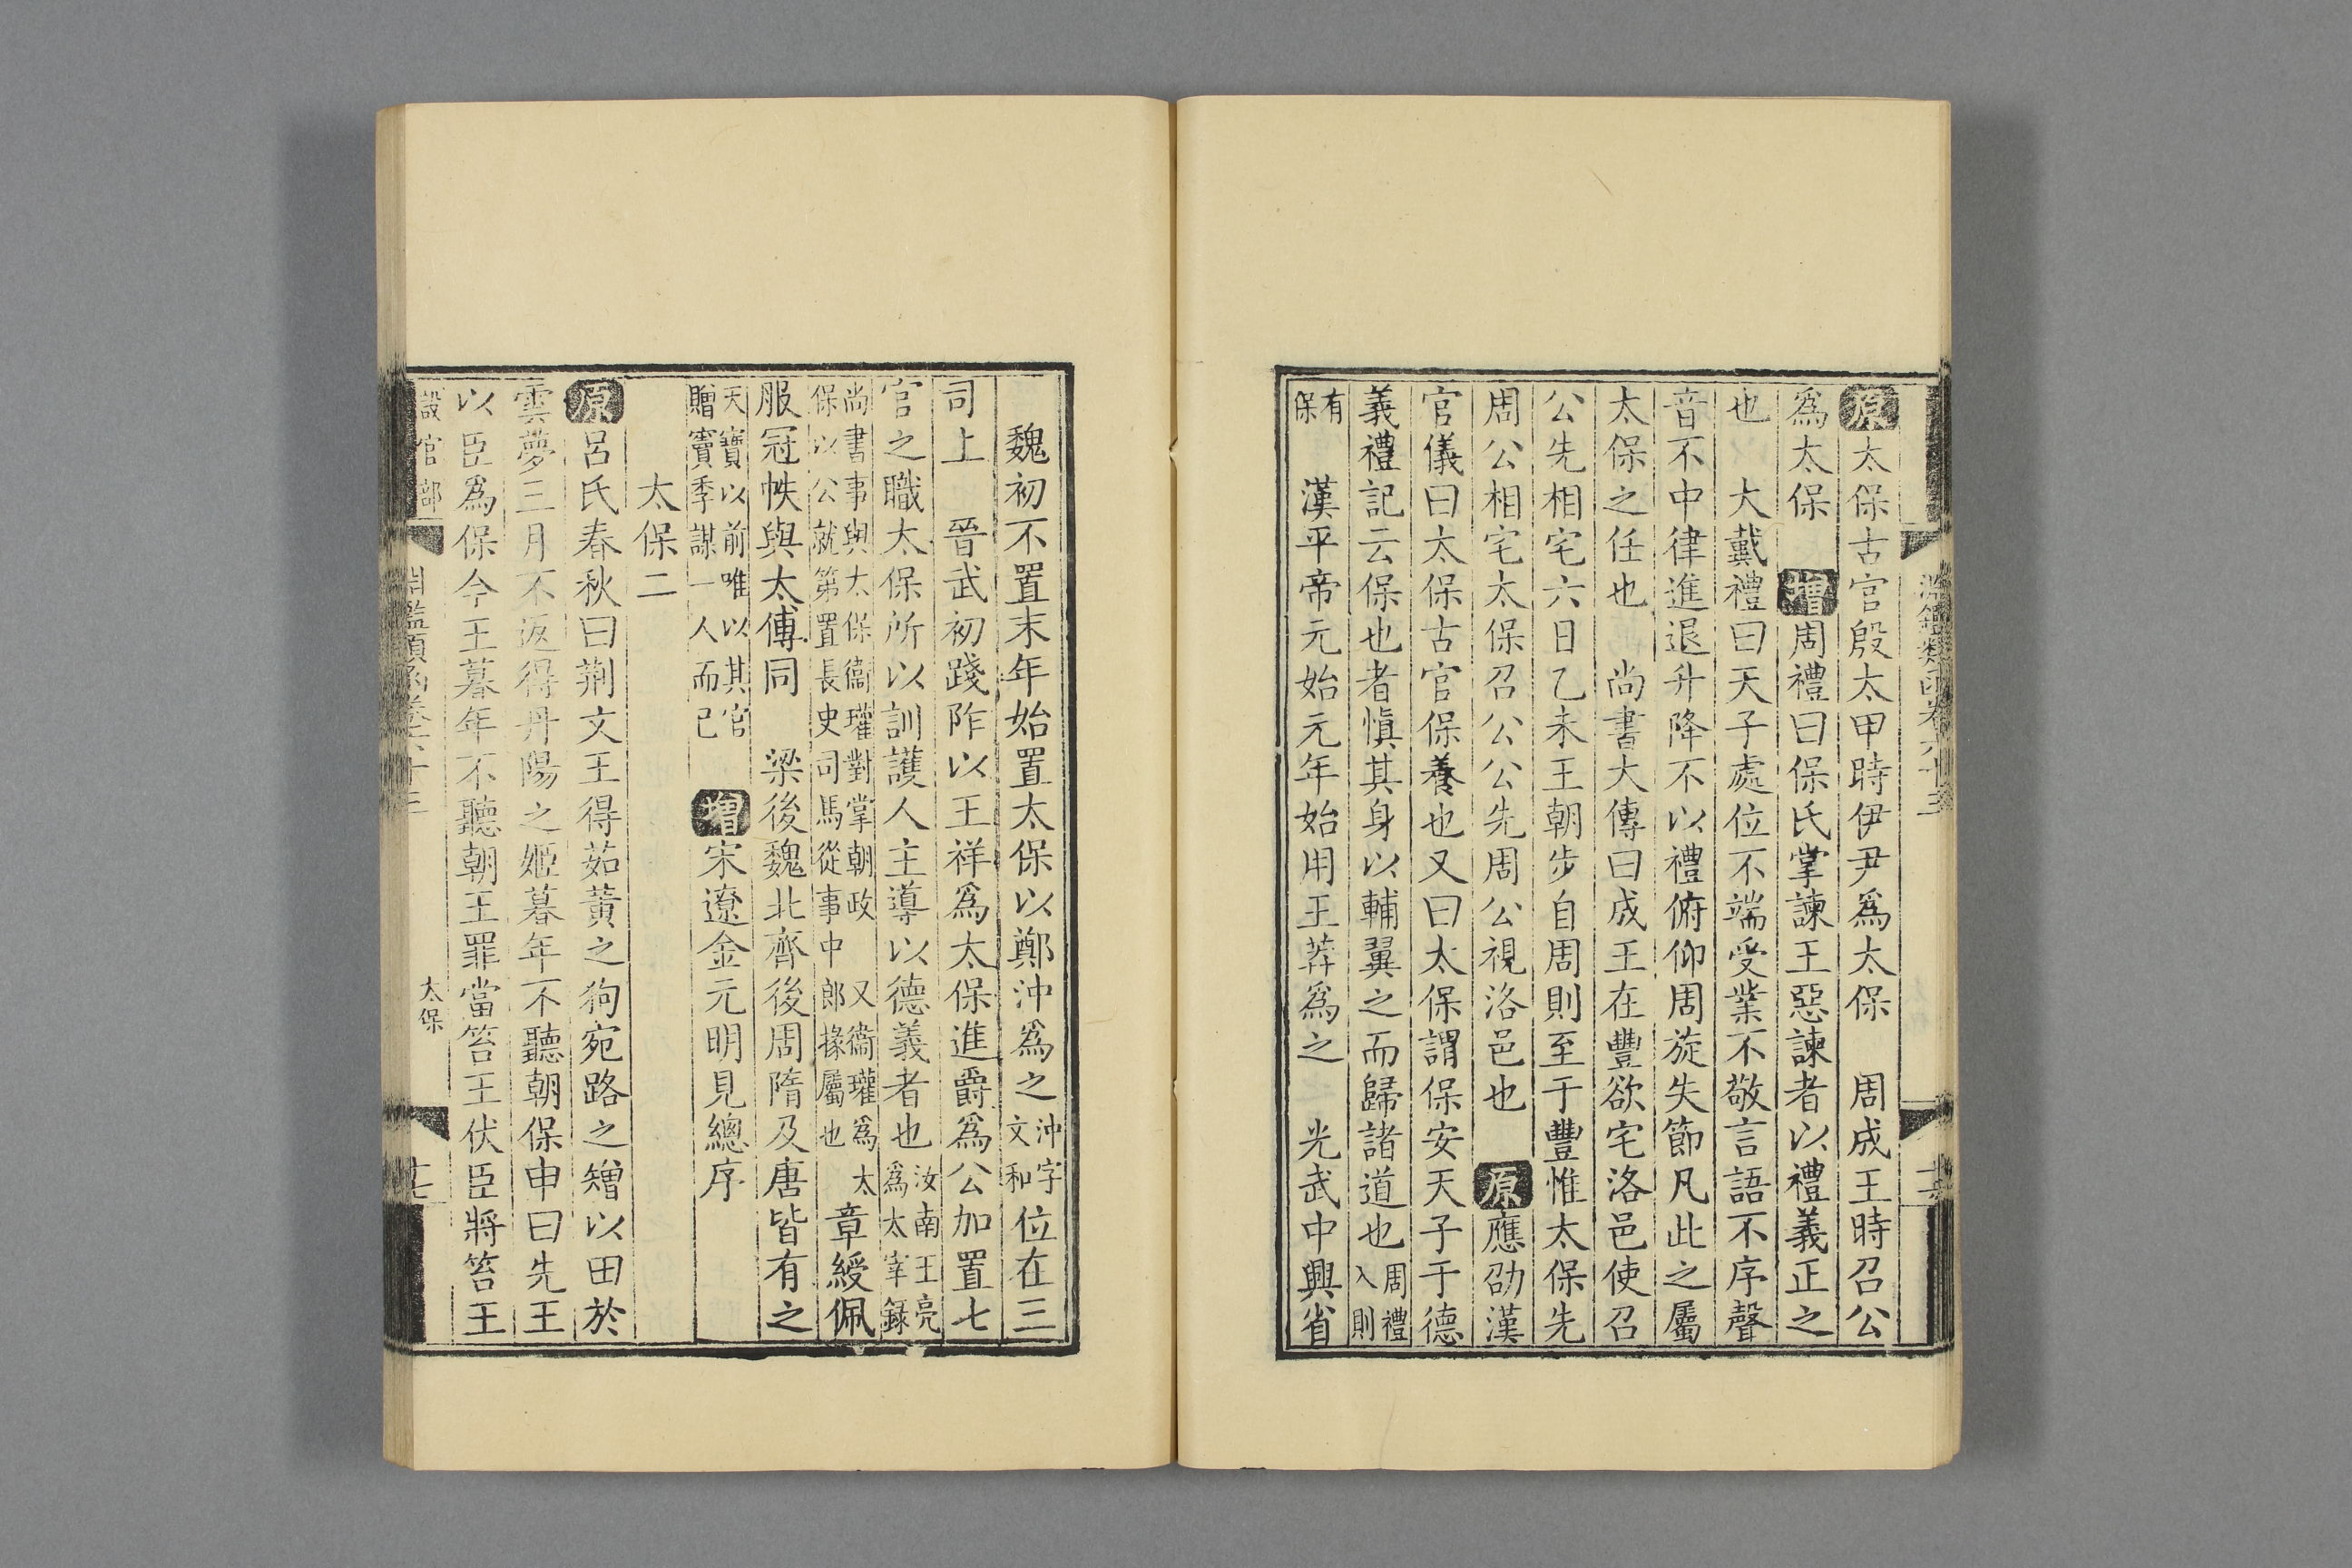 原太保古官殷太甲時伊尹爲太保　周成王時召公
爲太保　增周禮曰保氏掌諫王惡諫者以禮義正之
也　大戴禮曰天子處位不端受業不敬言語不序聲
音不中律進退升降不以禮俯仰周旋失節凡此之屬
太保之任也　尚書大傳曰成王在豐欲宅洛邑使召
公先相宅六日乙未王朝步自周則至于豐惟太保先
周公相宅太保召公公先周公視洛邑也　原應劭漢
官儀曰太保古官保養也又曰太保謂保安天子于德
義禮記云保也者慎其身以輔翼之而歸諸道也周禮入則
有保　漢平帝元始元年始用王莽爲之　光武中興省
魏初不置末年始置太保以鄭沖爲之沖字文和位在三
司上　晉武初踐阼以王祥爲太保進爵爲公加置七
官之職太保所以訓護人主導以德義者也汝南王亮爲太宰録
尚書事與太保衞瓘對掌朝政　又衞瓘爲太保以公就第置長史司馬從事中郎掾屬也章綬佩
服冠帙與太傅同　梁後魏北齊後周隋及唐皆有之
天寶以前唯以其官贈竇季謀一人而已　增宋遼金元明見總序
太保二
原呂氏春秋曰荆文王得茹黃之狗宛路之矰以田於
雲夢三月不返得丹陽之姬暮年不聽朝保申曰先王
以臣爲保今王暮年不聽朝王罪當笞王伏臣將笞王
設官部
太保